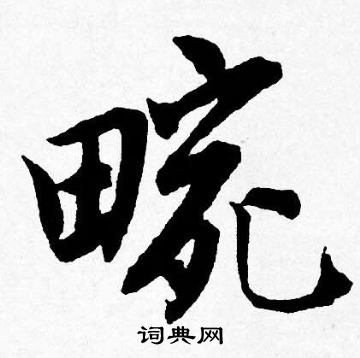 畹
词典网